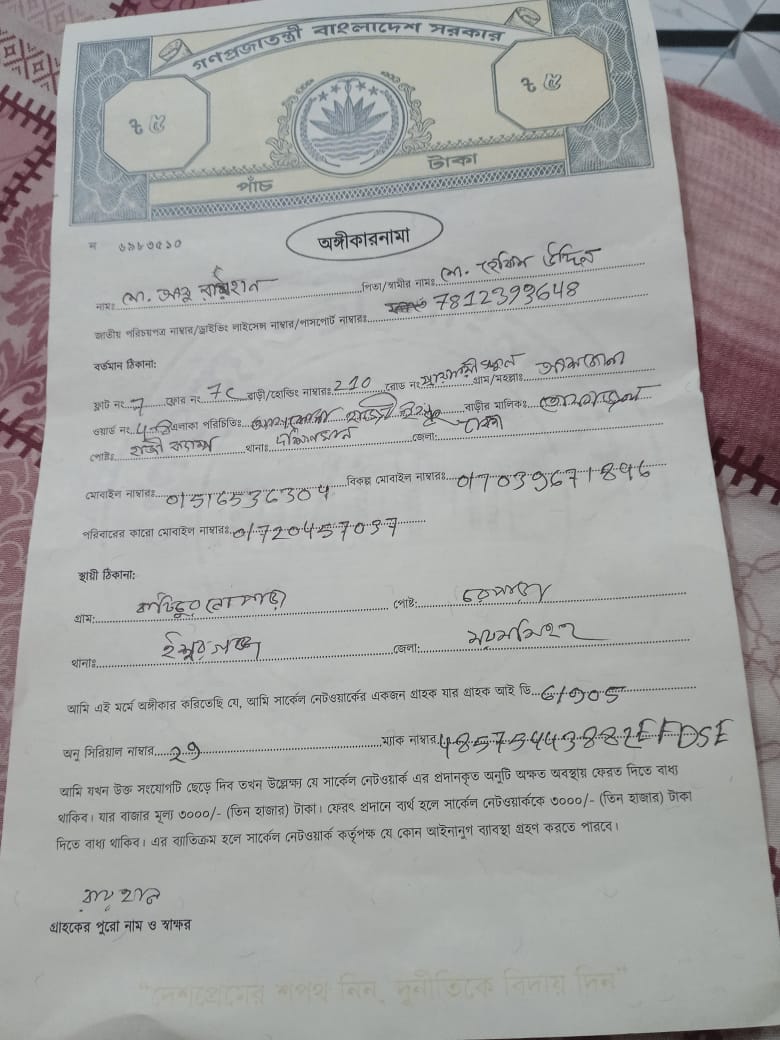 গণপ্রজাতন্ত্রী বাংলাদেশ সরকার
৳ ৫ ৳ ৫
পাঁচ টাকা
অঙ্গীকারনামা
নাম: মো. আবু রায়হান পিতা/স্বামীর নাম: মো. উদ্দিন
জাতীয় পরিচয়পত্র নাম্বার/ড্রাইভিং লাইসেন্স নাম্বার/পাসপোর্ট নাম্বার: 7812393648
বর্তমান ঠিকানা:
ফ্লাট নং: 7 ফ্লোর নং: 7C বাড়ী/হোল্ডিং নাম্বার: 210 রোড নং: গ্রাম/মহল্লা:
ওয়ার্ড নং: এলাকা পরিচিতি: বাড়ীর মালিক:
পোষ্ট: থানা: দক্ষিণখান জেলা: ঢাকা
মোবাইল নাম্বার: বিকল্প মোবাইল নাম্বার: 017039671846
পরিবারের কারো মোবাইল নাম্বার: 01720457037
স্থায়ী ঠিকানা:
গ্রাম: পোষ্ট:
থানাঃ ঈশ্বরগঞ্জ জেলা: ময়মনসিংহ
আমি এই মর্মে অঙ্গীকার করিতেছি যে, আমি সার্কেল নেটওয়ার্কের একজন গ্রাহক যার গ্রাহক আই ডি: 61905
অনু সিরিয়াল নাম্বার: 29 ম্যাক নাম্বার: 48575443882EFDSE
আমি যখন উক্ত সংযোগটি ছেড়ে দিব তখন উল্লেক্ষ্য যে সার্কেল নেটওয়ার্ক এর প্রদানকৃত অনুটি অক্ষত অবস্থায় ফেরত দিতে বাধ্য
থাকিব। যার বাজার মূল্য ৩০০০/- (তিন হাজার) টাকা। ফেরৎ প্রদানে ব্যর্থ হলে সার্কেল নেটওয়ার্ককে ৩০০০/- (তিন হাজার) টাকা
দিতে বাধ্য থাকিব। এর ব্যতিক্রম হলে সার্কেল নেটওয়ার্ক কর্তৃপক্ষ যে কোন আইনানুগ ব্যাবস্থা গ্রহণ করতে পারবে।
রায়হান
গ্রাহকের পুরো নাম ও স্বাক্ষর
"দেশপ্রেমের শপথ নিন, দুর্নীতিকে বিদায় দিন"